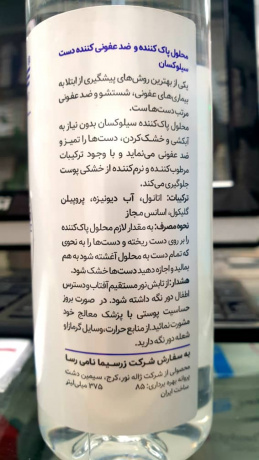 محلول پاک کننده و ضد عفونی کننده دست
سیلوکسان
یکی از بهترین روش‌های پیشگیری از ابتلا به
بیماری‌های عفونی، شستشو و ضد عفونی
مرتب دست‌ها ست.
محلول پاک‌کننده سیلوکسان بدون نیاز به
آبکشی و خشک‌کردن، دست‌ها را تمیز و
ضد عفونی می‌نماید و با وجود ترکیبات
مرطوب‌کننده و نرم‌کننده از خشکی پوست
جلوگیری می‌کند.
ترکیبات: اتانول، آب دیونیزه، پروپیلن
گلیکول، اسانس مجاز
نحوه مصرف: به مقدار لازم محلول پاک‌کننده
را بر روی دست ریخته و دست‌ها را به نحوی
که تمام دست به محلول آغشته شود به هم
بمالید و اجازه دهید دست‌ها خشک شود.
هشدار: از تابش نور مستقیم آفتاب و دسترس
اطفال دور نگه داشته شود. در صورت بروز
حساسیت پوستی با پزشک معالج خود
مشورت نمائید. از منابع حرارت، وسایل گرمازا و
شعله دور نگه دارید.
به سفارش شرکت زرسیما نامی رسا
محصولی از شرکت ژاله نور، کرج، سیمین دشت
پروانه بهره برداری: ۸۵
۳۷۵ میلی‌لیتر
ساخت ایران